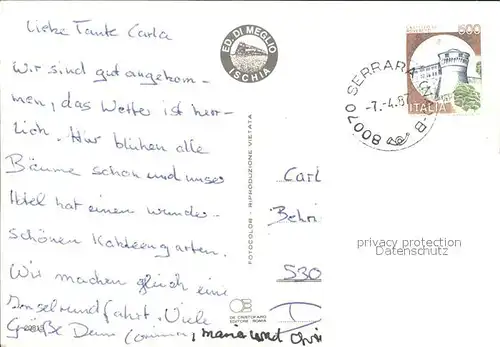 Liebe Tante Carla
Wir sind gut angekom-
men, das Wetter ist herr-
lich. Hier blühen alle
Bäume schon und unser
Hotel hat einen wunder-
schönen Kakteengarten.
Wir machen gleich eine
Inselrundfahrt. Viele
Grüße Dein
, maria und
ED. DI MEGLIO
ISCHIA
FOTOCOLOR - RIPRODUZIONE VIETATA
DE CRISTOFARO
EDITORE ROMA
500
ITALIA
80070 SERRARA
-7.-4.87
Carl
Behri
530
D
privacy protection
Datenschutz